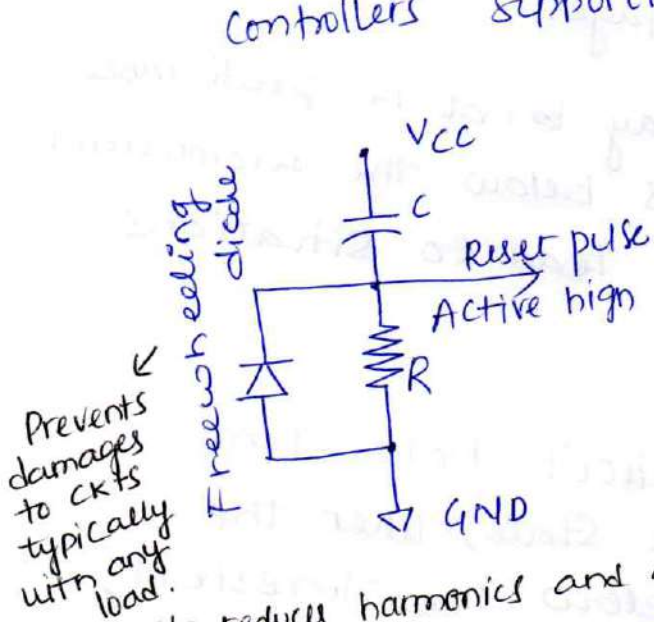 Controllers
VCC
C
Reset pulse
Active high
R
GND
Freewheeling
diode
Prevents
damages
to CKTs
typically
with any
load.
reduces harmonics and